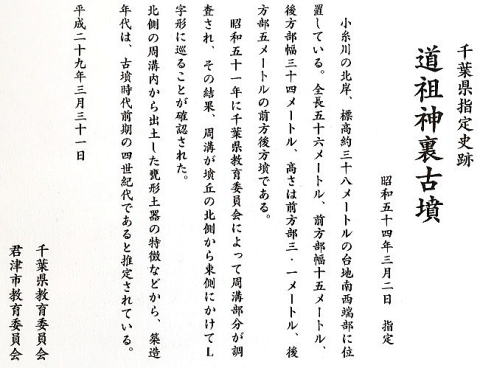 千葉県指定史跡
道祖神裏古墳
昭和五十四年三月二日　指定
小糸川の北岸、標高約三十八メートルの台地南西端部に位
置している。全長五十六メートル、前方部幅十五メートル、
後方部幅三十四メートル、高さは前方部三・一メートル、後
方部五メートルの前方後方墳である。
昭和五十一年に千葉県教育委員会によって周溝部分が調
査され、その結果、周溝が墳丘の北側から東側にかけてＬ
字形に巡ることが確認された。
北側の周溝内から出土した甕形土器の特徴などから、築造
年代は、古墳時代前期の四世紀代であると推定されている。
平成二十九年三月三十一日
千葉県教育委員会
君津市教育委員会